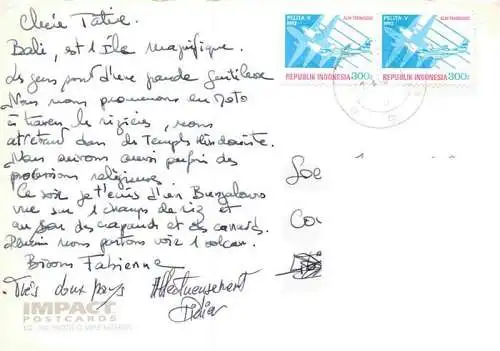 Chère Tatie.
Bali, est l'île magnifique.
Les gens sont d'une grande gentillesse
Nous nous promenons en Moto
à travers les rizières, nous
arrêtant dans des Temples Hindouiste.
Nous suivons aussi parfois des
processions religieuses
Ce soir je t'écris d'un Bungalows
vue sur 1 champs de riz et
au son des crapauds et des canards.
Demain nous partons voir 1 volcan.
Bisous Fabienne
Très doux pays Affectueusement
Didier
IMPACT
POSTCARDS
PELITA V
1992
ALIH TEKNOLOGI
REPUBLIK INDONESIA 300
PELITA V
1992
ALIH TEKNOLOGI
REPUBLIK INDONESIA 300